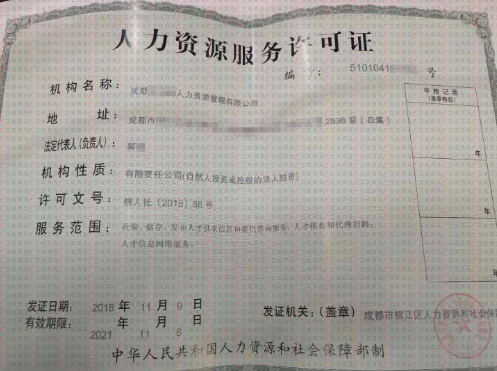 人力资源服务许可证
编 号：5101041 号
机构名称：
成都 人力资源管理有限公司
地 址：
成都市 2836室（自编）
法定代表人(负责人)：
机构性质：
有限责任公司(自然人投资或控股的法人独资)
许可文号：
锦人社〔2018〕86号
服务范围：
收集、储存、发布人才供求信息和职业咨询服务；人才推荐和代理招聘；
人才信息网络服务。
年检记录
(盖章有效)
年
年
年
发证日期： 2018 年 11 月 9 日
有效期限： 年 月 日
2021 11 8
发证机关：(盖章) 成都市锦江区人力资源和社会保
中华人民共和国人力资源和社会保障部制